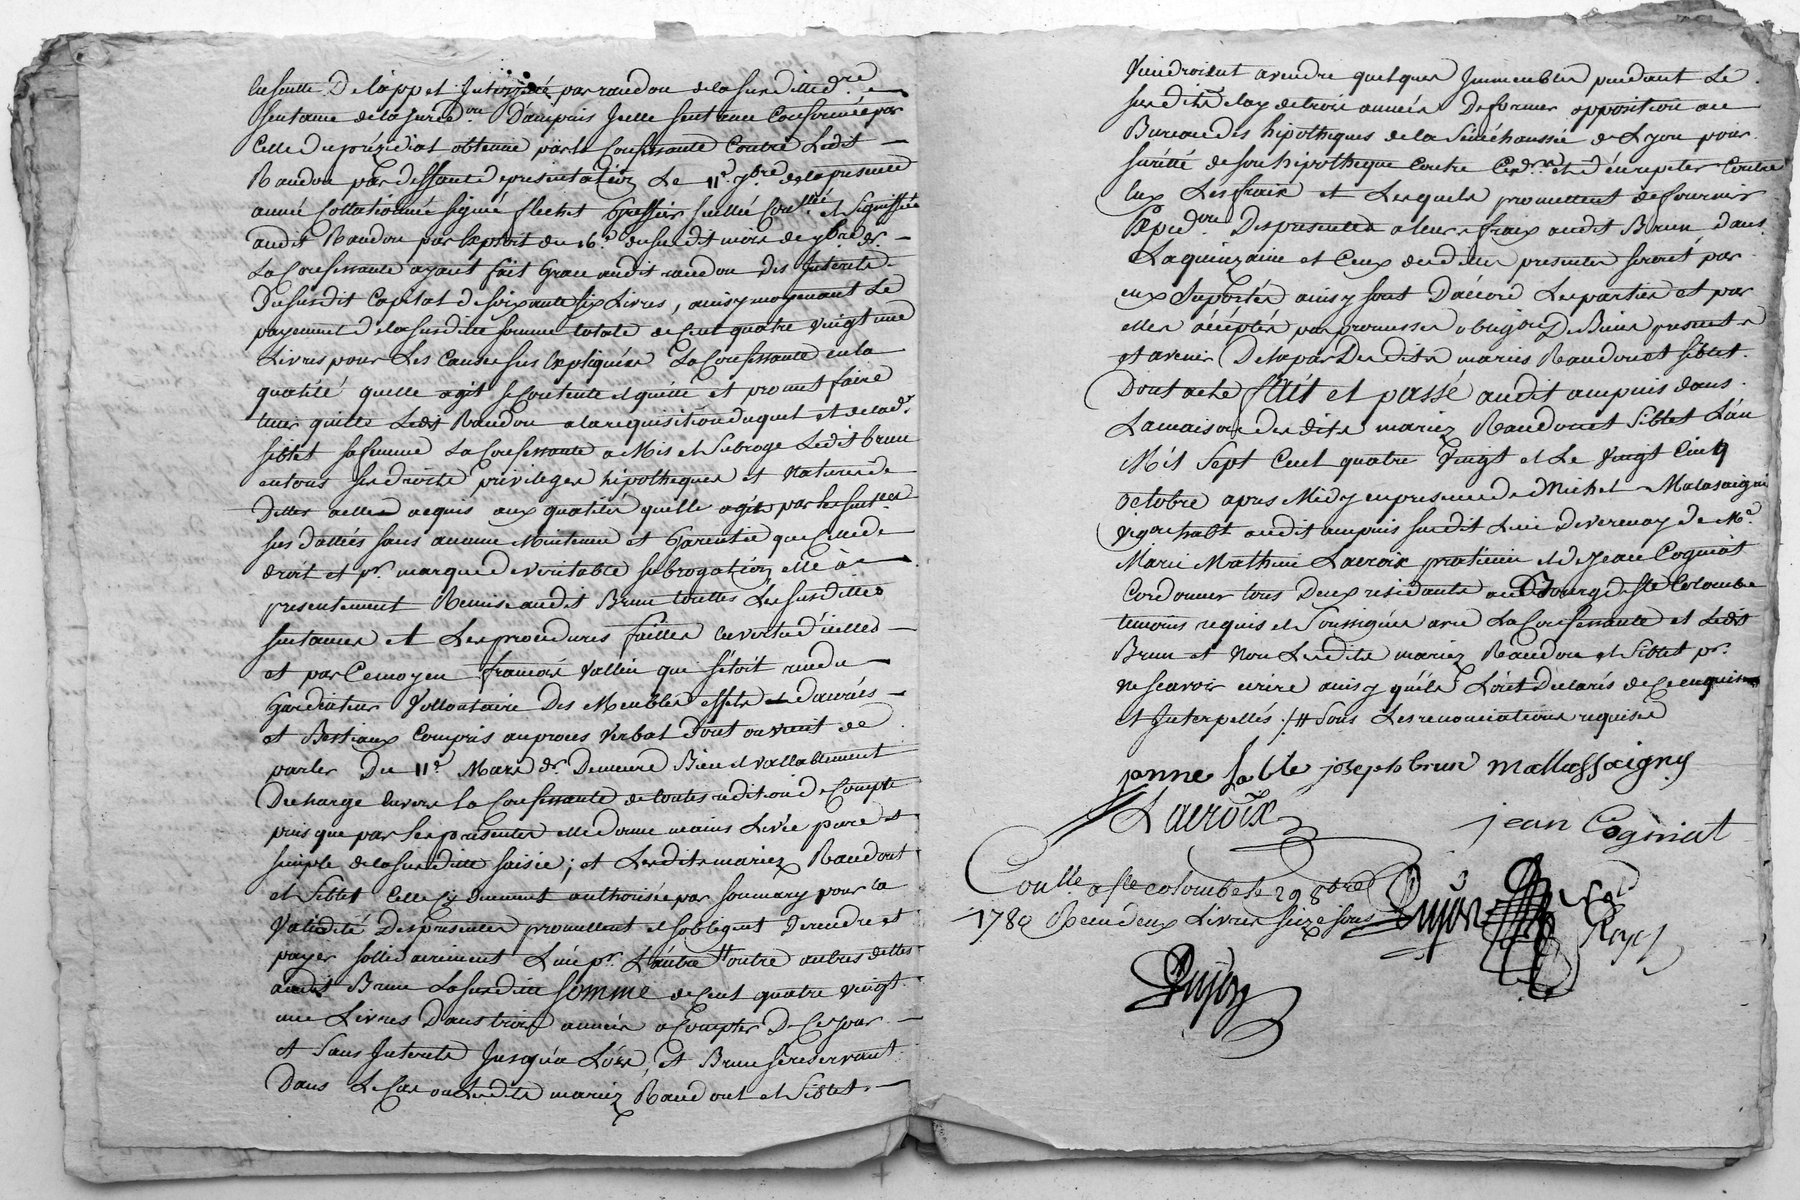 ensuitte De lappel Interjetté par raudon de la susditte d.re
sentance de la jured.on D'ampuis Jcelle sentence Confirmée par
Celle du présidial obtenue par la Confessante Contre Ledit
Raudon par deffaut de présentation Le 11.e 7.bre de la presente
année Collationnée signée flechet Greffier scellée Con.llée et signiffiée
audit Raudon par Exploit du 16.e du susdit mois de 7bre d.r
La Confessante ayant fait Grace audit raudon Des Jnterets
Dususdit Capital de soixante six Livres, ainsy moyenant Le
payement De la susditte somme totale de Cent quatre vingt une
Livres pour Les Causes sus Expliquées La Confessante en la
qualité quelle agit se Contente et quitte et promet faire
tenir quitte Ledit Raudon a la requisition duquel et de lad.e
siblet sa femme La Confessante a Mis et subrogé Ledit brun
en tous ses droits privileges hipotheques et Natures de
Dettes a elle acquis aux qualités quelle agit par les sent.ces
sus dattées sans aucune Maintenue et Garentie que Celle de
droit et p.r marque de veritable subrogation elle à
presentement Remis audit Brun touttes Les susdittes
sentances et Les procedures faittes en vertu d'icelles
et par Ce moyen francois Vallin qui s'étoit rendu
Gardiateur Vollontaire Des Meubles effets Danrées
et Bestiaux Compris au proces Verbal Dont on vient de
parler Du 11.e Mars d.r Demeure Bien et vallablement
Decharge envers la Confessante de toutes reditions de Compte
puis que par les presentes elle donne mains Levée pure et
simple de la susditte saisie; et Lesdits mariez Raudont
et siblet Celle cy Dument authorisée par son mary pour la
Validité Des presentes promettent et sobligent De rendre et
payer sollidairement L'un p.r L'autre # outre autres dettes
audit Brun La susditte somme de Cent quatre vingt
une Livres Dans trois années a Compter De Ce jour
et sans Jnterets Jusqu'a Lors, et Brun se reservant
Dans Le Cas ou Lesdits mariez Raudont et siblet
Viendroient a vendre quelques Jmmeubles pendant Le
susdit delay de trois années De former opposition au
Bureau des hipotheques de la sénéchaussée de Lyon pour
suretté de son hipotheque Contre et d'en repeter Contre
Eux Les frais et Lesquels promettent de fournir
Exped.on Des presentes a leurs frais audit Brun dans
La quinzaine et Ceux desdittes presentes seront par
eux suportés ainsy sont D'accord Les parties et par
elles accéptés par promesses obligaons De Biens presents
et avenir De la part Desdits mariés Raudon et siblet
Dont acte fait et passé audit ampuis dans
La maison desdits mariez Raudon et siblet L'an
Mil sept Cent quatre Vingt et Le vingt Cinq
octobre apres Midy en presence de Michel Malasaigni
Vig.on habt audit ampuis susdit Lieu De verenay de M.e
Marie Mathieu Lacroix praticien et de Jean Cogniat
Cordonier tous Deux residants au Bourg de ste Colombe
temoins requis et soussignés avec La Confessante et Ledit
Brun et Non Lesdits mariez Raudon et siblet p.r
ne scavoir ecrire ainsy qu'ils L'ont Declarés de Ce enquis
et Jnterpellés ./# sous Les renonciations requises
joseph brun mallassaigny
Lacroix jean Cogniat
Con.lle a ste colombe le 29 8bre
1780 Reçu deux Livres seize sous Dujon
Dujon